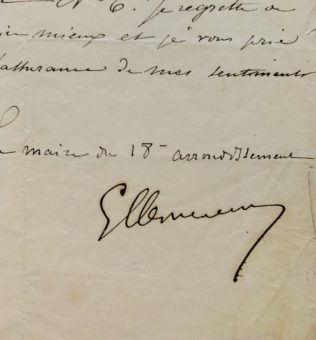 je regrette de
mieux et je vous prie
assurance de mes sentiments
maire du 18e arrondissement
GClemenceau